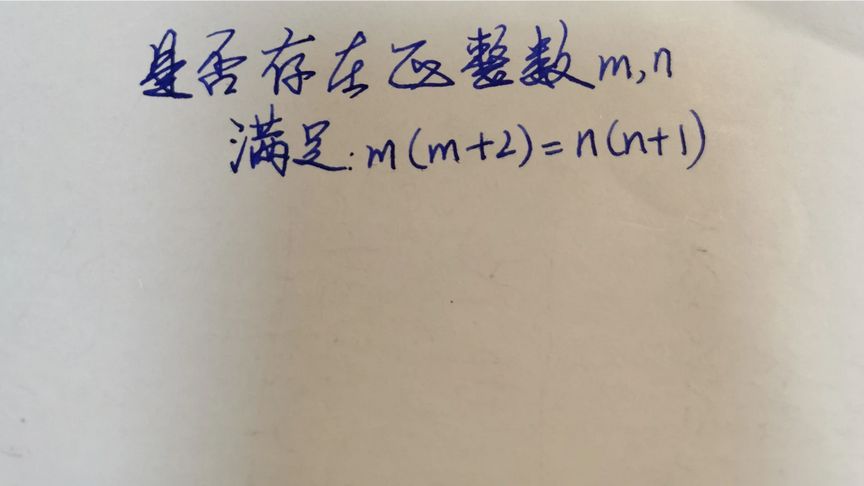 是否存在正整数m,n
满足:m(m+2)=n(n+1)